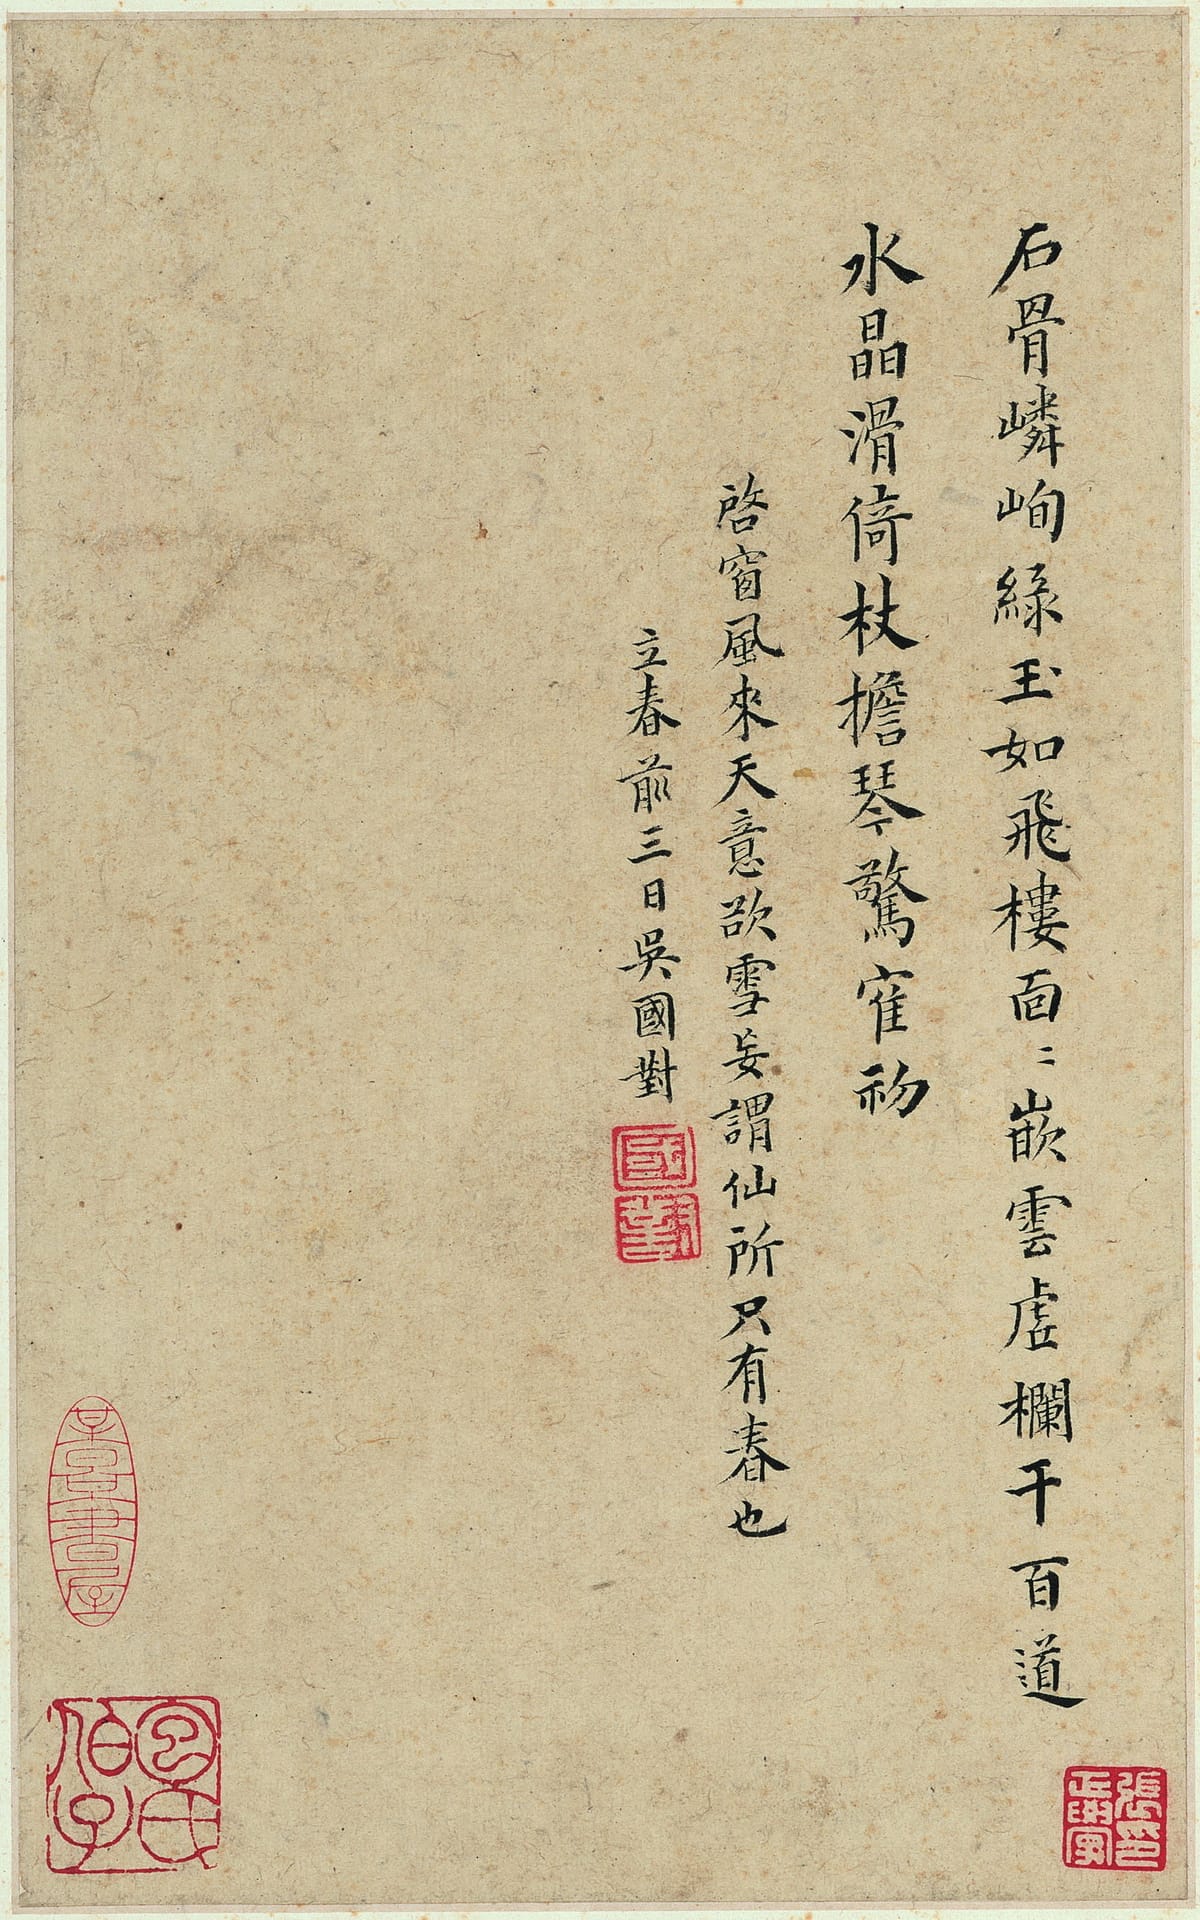 石骨嶙峋綠玉如飛樓面〻嵌雲虛欄干百道
水晶滑倚杖擔琴驚寉礿
啓窗風來天意欲雪妄謂仙所只有春也
立春前三日吳國對
國對